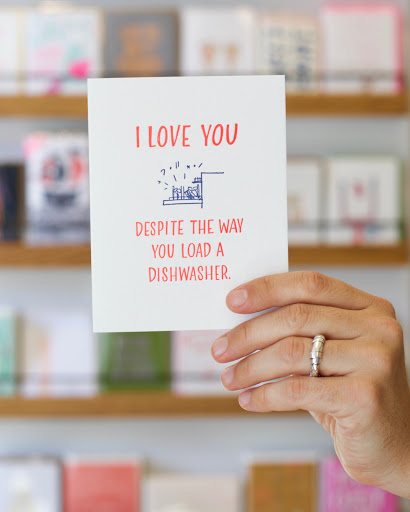 I LOVE YOU
DESPITE THE WAY
YOU LOAD A
DISHWASHER.